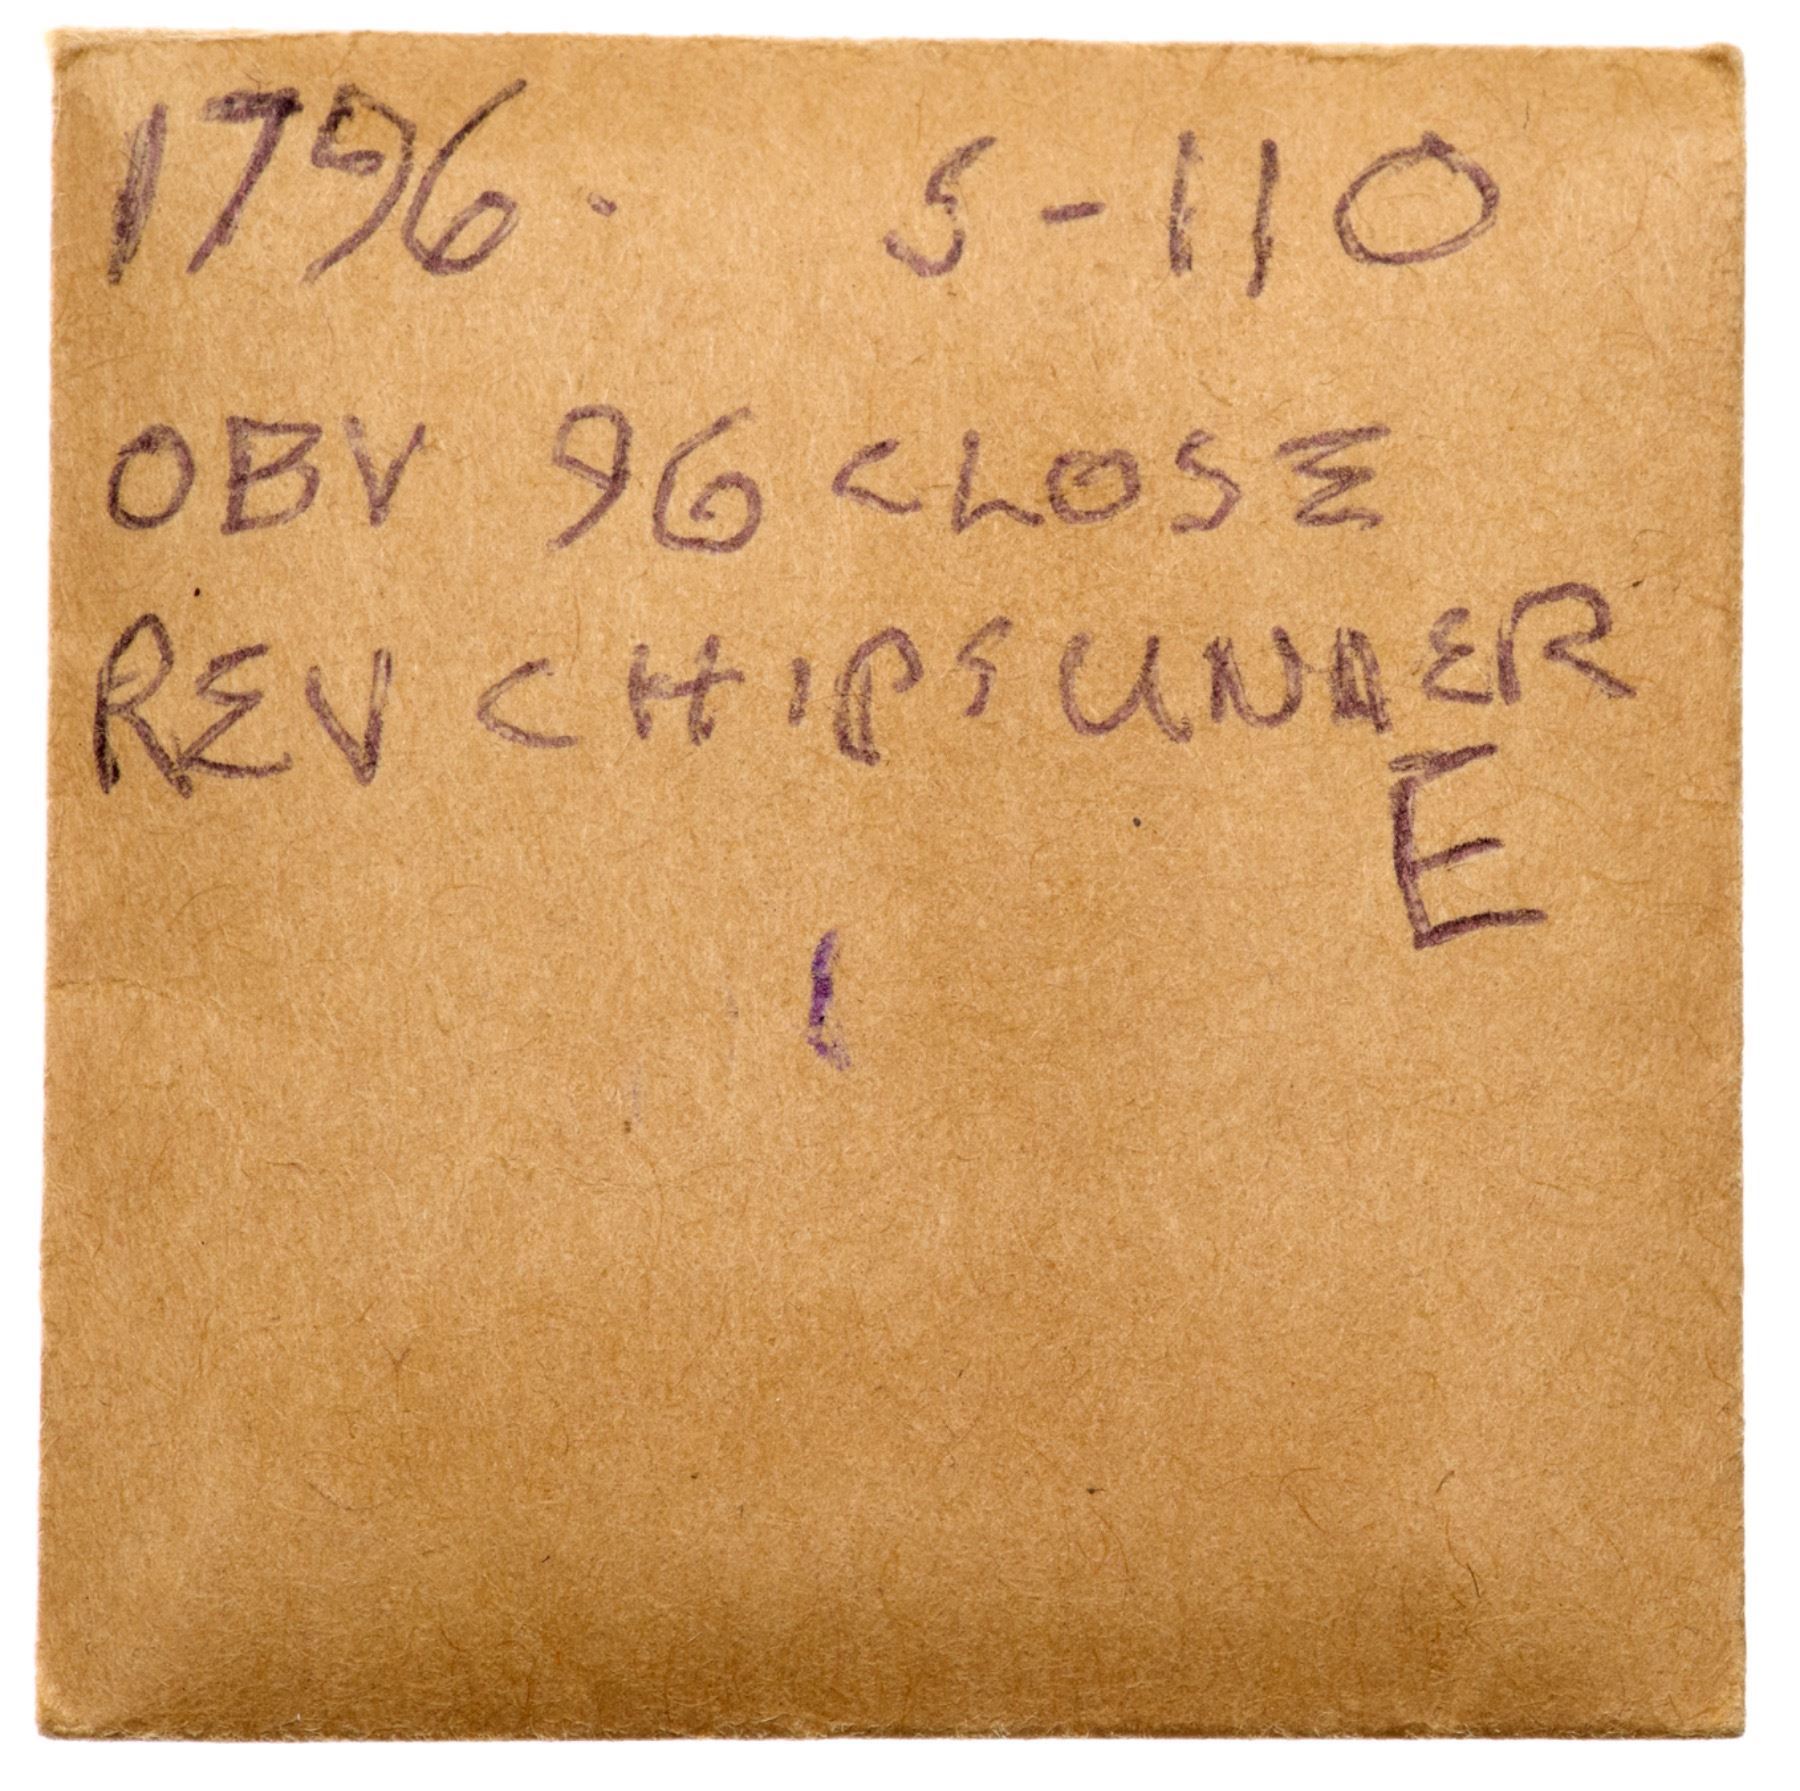 1796. S-110
OBV 96 CLOSE
REV CHIPS UNDER
E